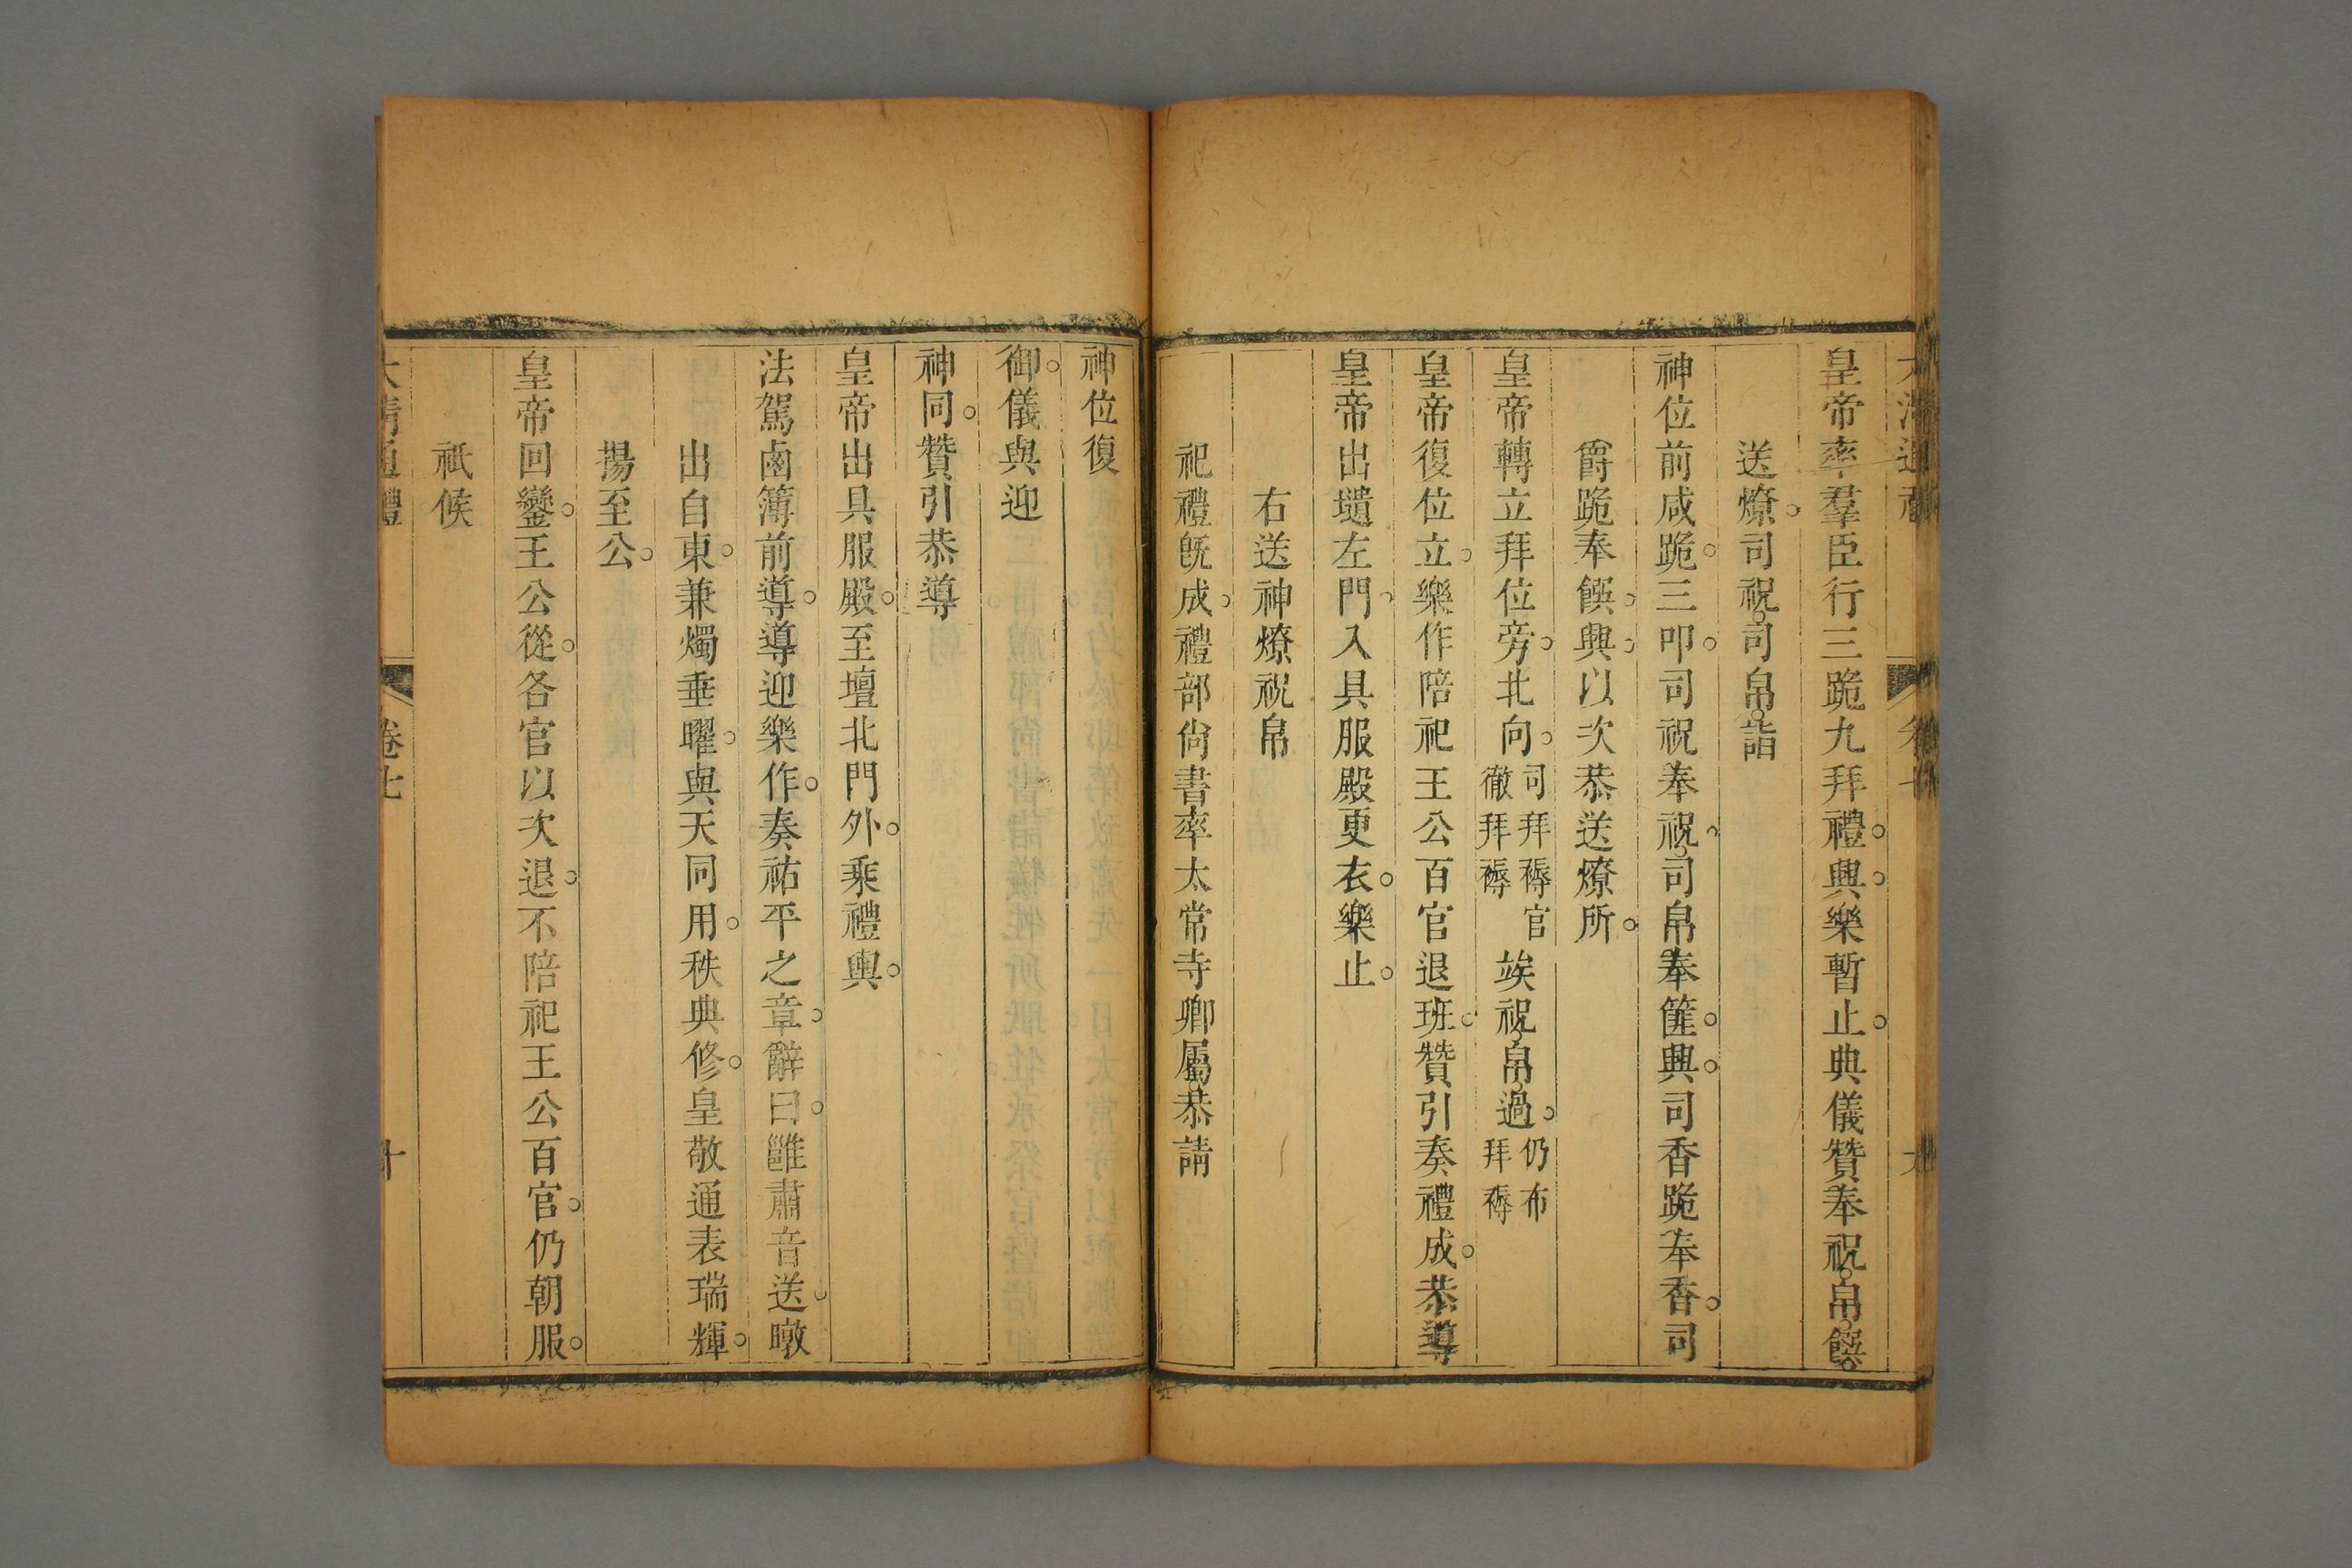 大清通禮 卷七 九
皇帝率羣臣行三跪九拜禮。興。樂暫止。典儀贊奉祝。帛。饌。
送燎。司祝。司帛。詣
神位前咸跪。三叩。司祝奉祝。司帛奉篚。興。司香跪奉香。司
爵跪奉饌。興。以次恭送燎所。
皇帝轉立拜位旁。北向。司拜褥官徹拜褥竢祝。帛。過。仍布拜褥
皇帝復位立。樂作陪祀王公百官退班。贊引奏禮成。恭導
皇帝出壝左門。入具服殿更衣。樂止。
右送神燎祝帛
祀禮旣成。禮部尙書率太常寺卿屬。恭請
神位復
御。儀與迎
神同。贊引恭導
皇帝出具服殿。至壇北門外。乘禮輿。
法駕鹵簿前導。導迎樂作。奏祐平之章。辭曰。雝肅音送。暾
出自東。兼燭垂曜。與天同用。秩典修。皇敬通表瑞輝。
揚至公。
皇帝回鑾。王公從。各官以次退。不陪祀王公百官。仍朝服。
祇候
大清通禮 卷七 十